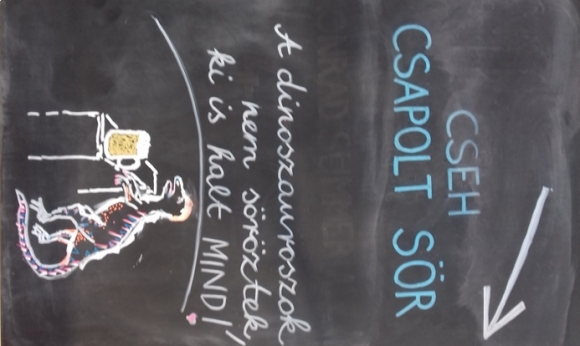 CSEH
CSAPOLT SÖR
A dinoszauroszok
nem söröztek,
ki is halt MIND!